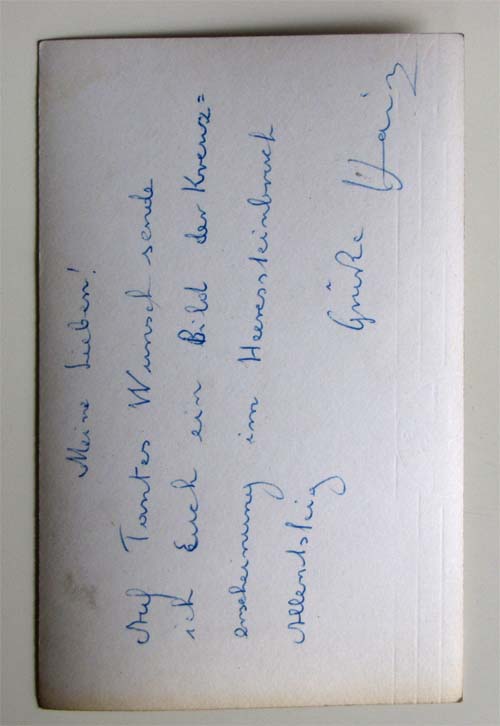 Meine Lieben!
Auf Tantes Wunsch sende
ich Euch ein Bild der Kreuz=
erscheinung im Heeressteinbruch
Allentsteig
Grüße Hain